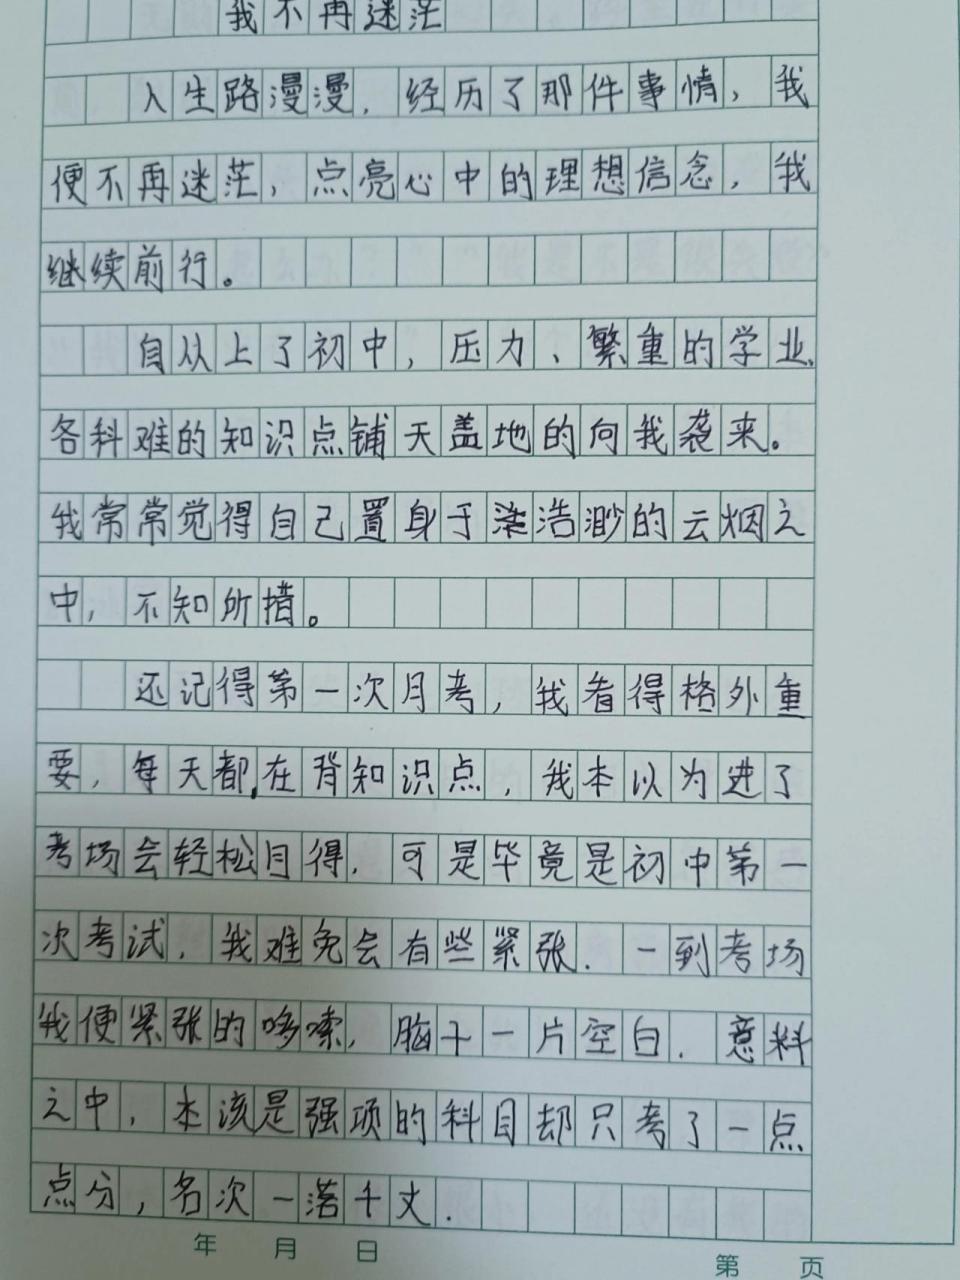 我不再迷茫
人生路漫漫，经历了那件事情，我
便不再迷茫，点亮心中的理想信念，我
继续前行。
自从上了初中，压力、繁重的学业、
各科难的知识点铺天盖地的向我袭来。
我常常觉得自己置身于浩渺的云烟之
中，不知所措。
还记得第一次月考，我看得格外重
要，每天都在背知识点，我本以为进了
考场会轻松自得，可是毕竟是初中第一
次考试，我难免会有些紧张.一到考场
我便紧张的哆嗦，脑十一片空白.意料
之中，本该是强项的科目却只考了一点
点分，名次一落千丈.
年 月 日
第 页